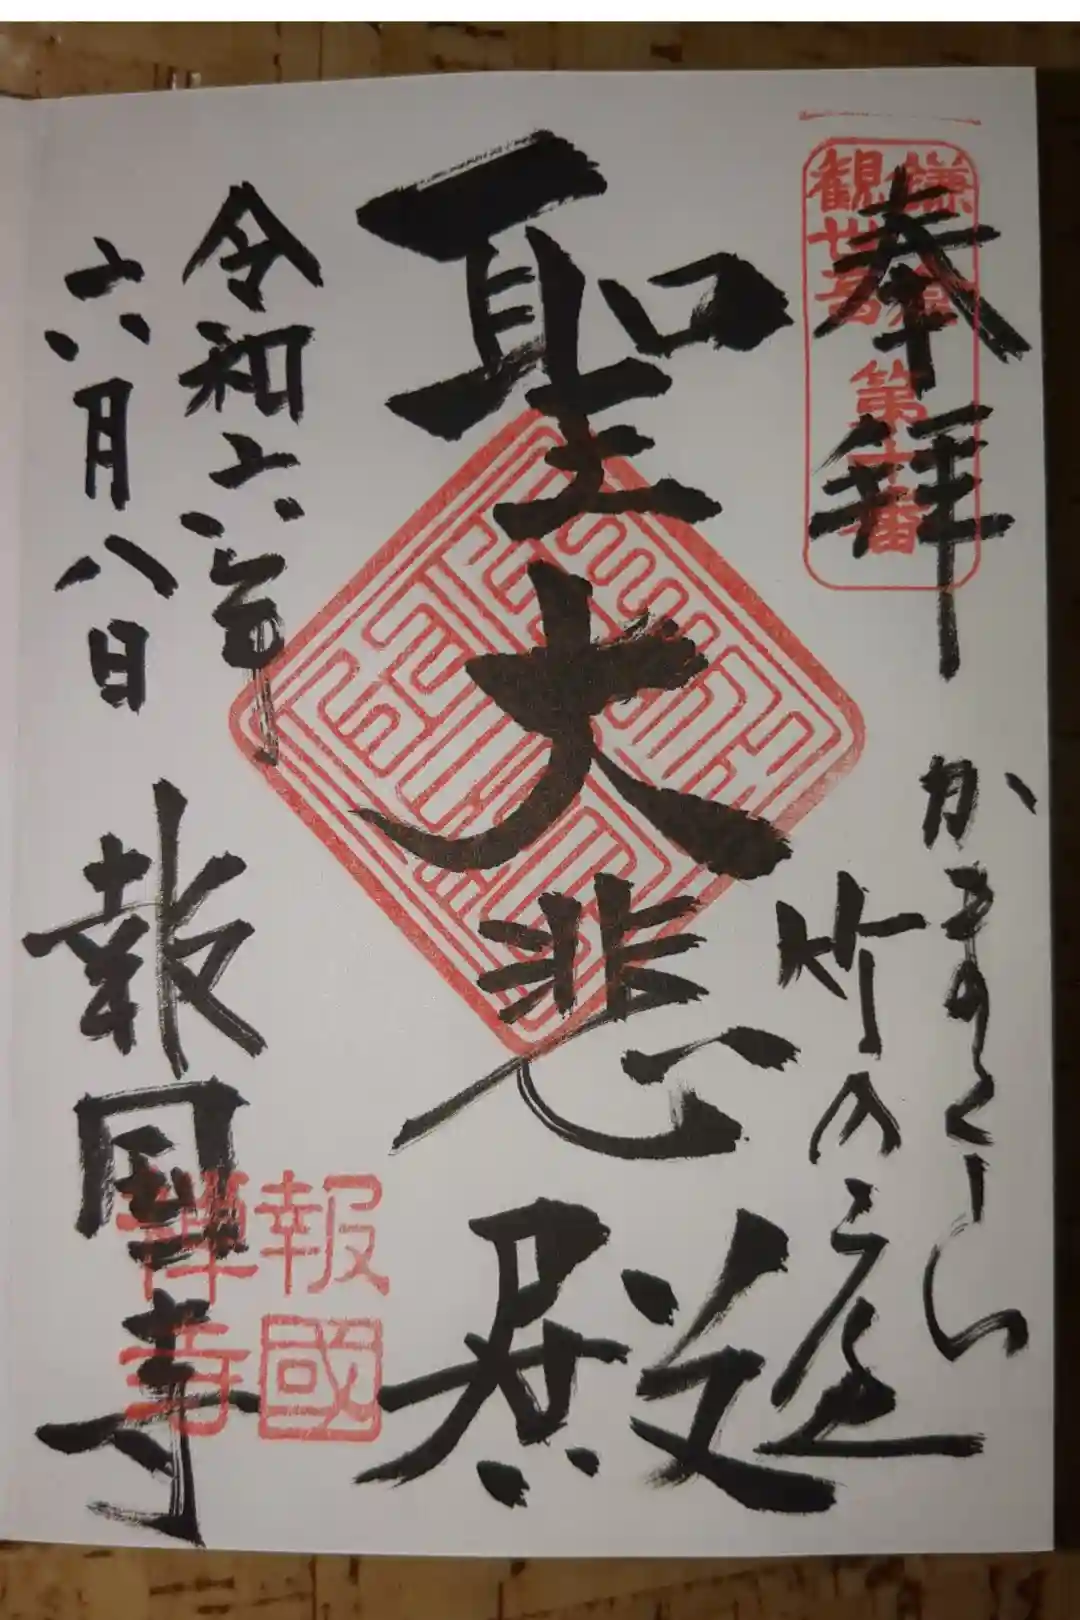 奉拝
鎌倉
観世音
第十番
かまくら
竹の庭
聖大悲殿
令和六年
六月八日
報国寺
報國
禅寺